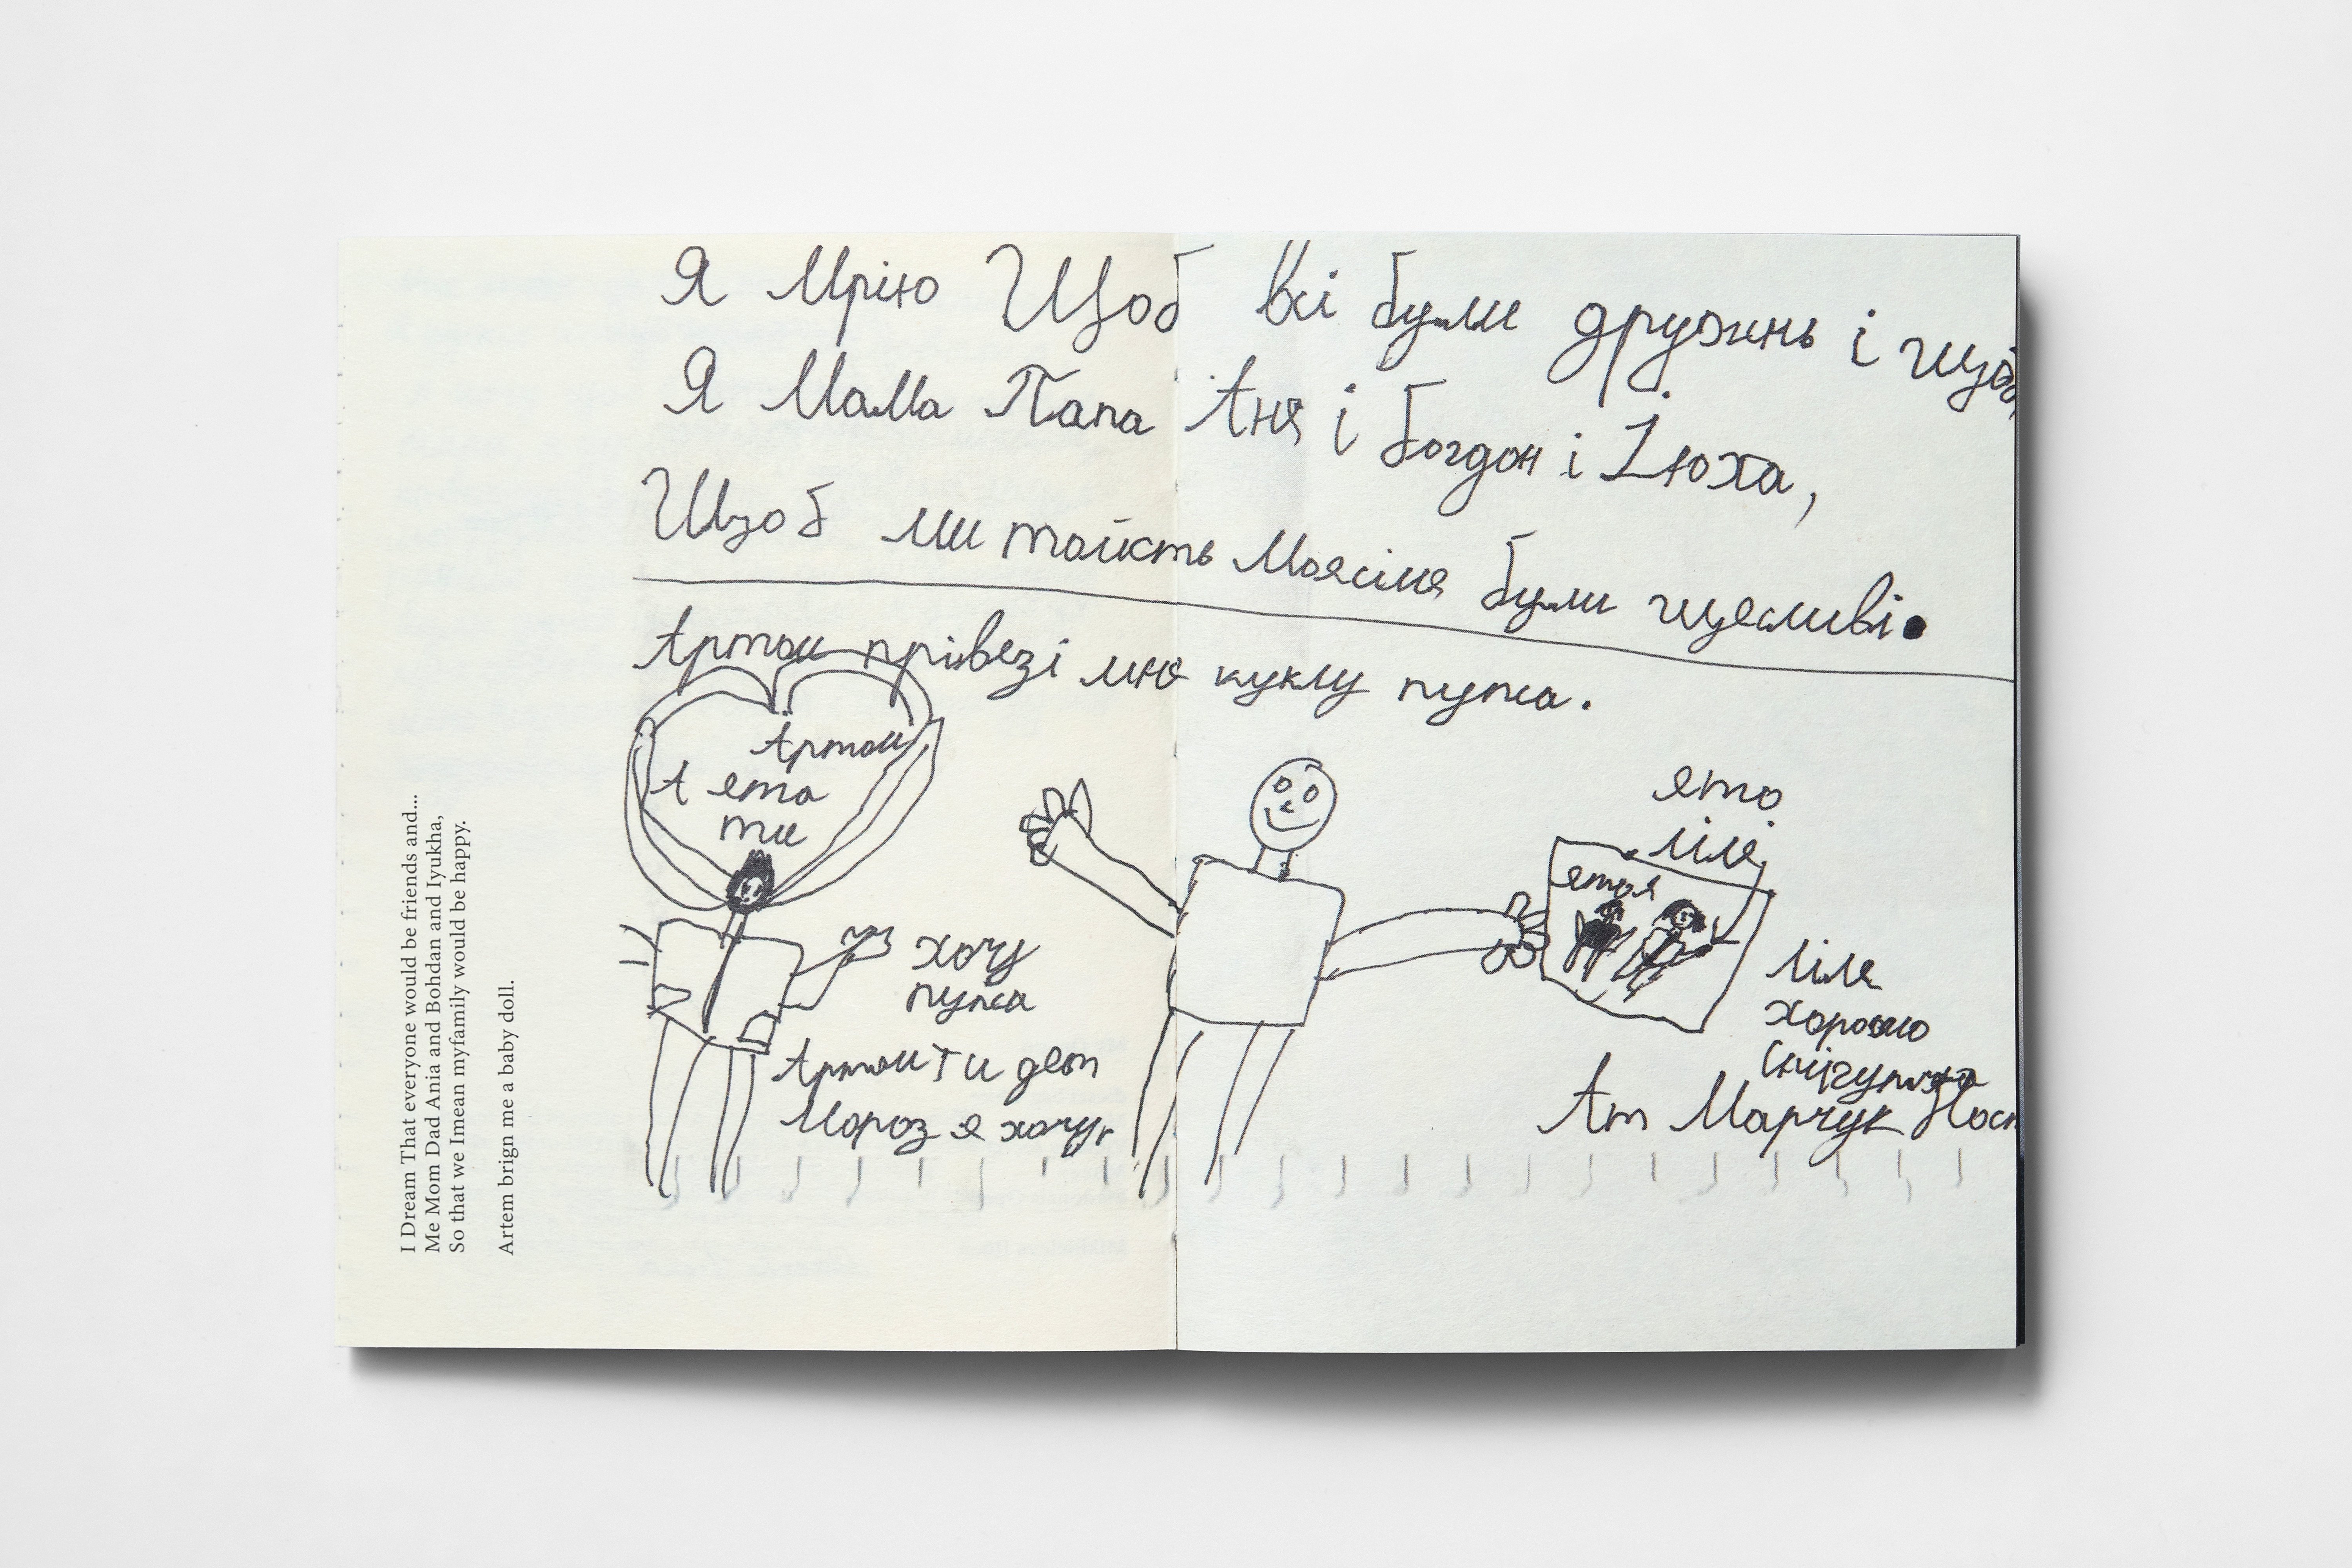 I Dream That everyone would be friends and...
Me Mom Dad Ania and Bohdan and Iyukha,
So that we Imean myfamily would be happy.
Artem brign me a baby doll.
Я Мрію Щоб всі були дружинь і щоб,
Я Мама Папа Аня і богдон і Іюха,
Щоб ми тоїсть Моясімя були щесливі.
Артом прівезі мнє куклу пупса.
Артом
А ето
ти
хочу
пупса
Артом Ти дет
Мороз я хочу
ето
ліля
етоя
ліля
хорошо
От Марчук